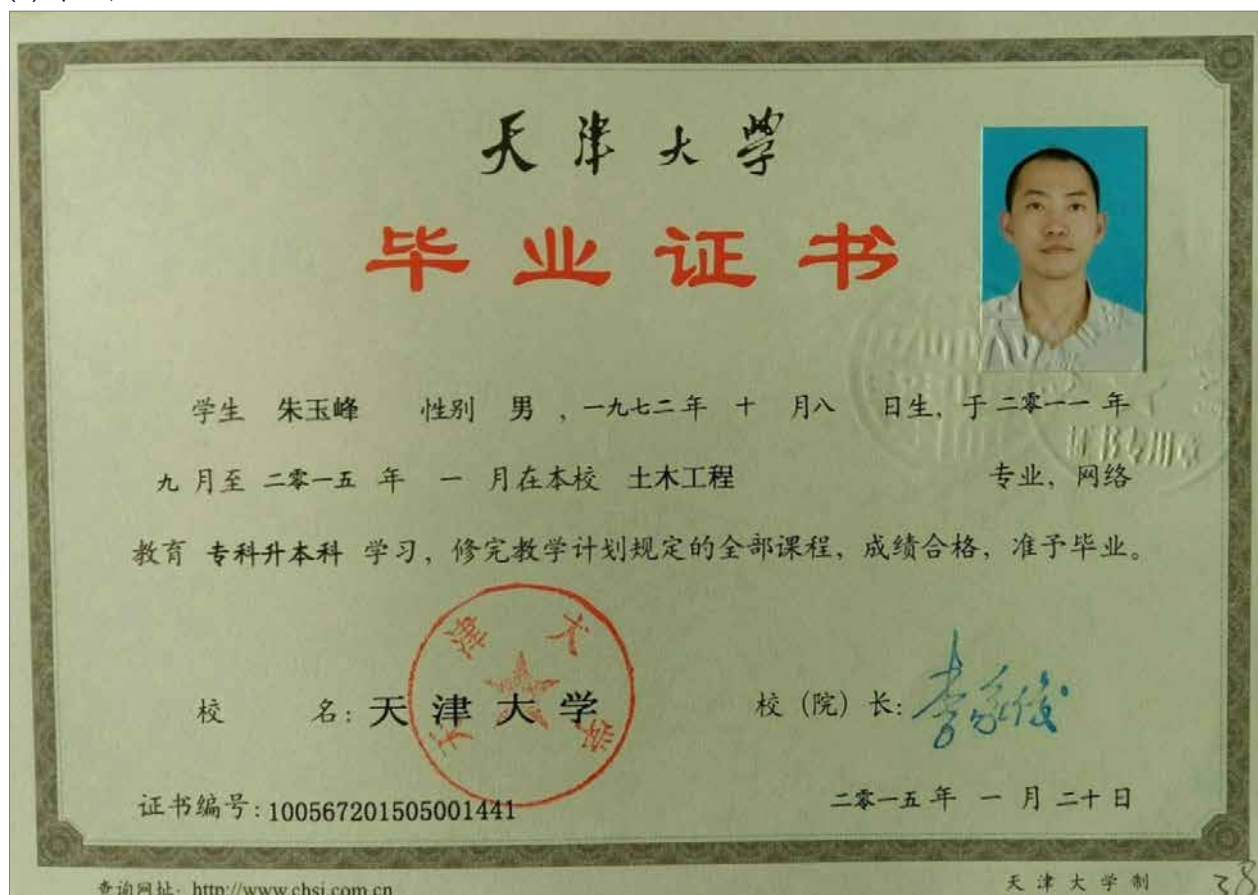 天津大学
毕业证书
学生 朱玉峰 性别 男 ,一九七二年 十 月八 日生, 于二零一一 年
九 月至 二零一五 年 一 月在本校 土木工程 专业, 网络
教育 专科升本科 学习, 修完教学计划规定的全部课程, 成绩合格, 准予毕业。
天津大学
证书专用章
校 名: 天津大学 校 (院) 长: 李家俊
证书编号: 100567201505001441 二零一五 年 一 月 二十 日
查询网址: http://www.chsi.com.cn 天津大学制 38